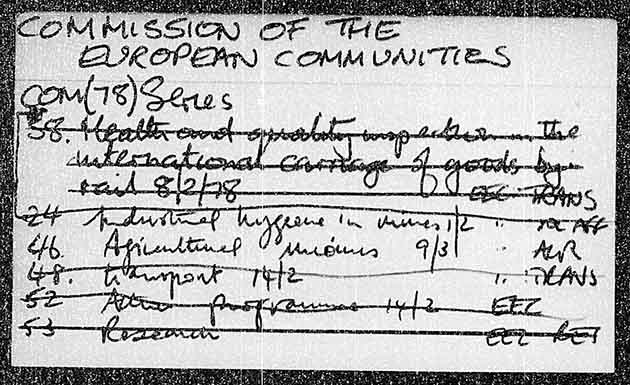 COMMISSION OF THE
EUROPEAN COMMUNITIES
COM(78) Series
58. Health and quality inspection in the
international carriage of goods by
rail 8/2/78 EEC TRANS
24 Industrial hygiene in mines 1/2 "
46. Agricultural 9/3 " AGR
48. transport 14/2 " TRANS
52 Action programme 14/2 EEC
53 Research EEC